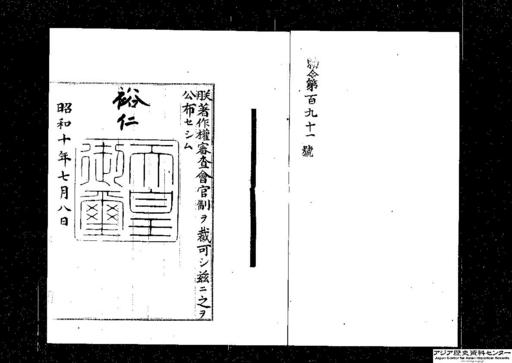 勅令第百九十一號
朕著作權審査會官制ヲ裁可シ茲ニ之ヲ
公布セシム
裕仁
天皇御璽
昭和十年七月八日
アジア歴史資料センター
Japan Center for Asian Historical Records